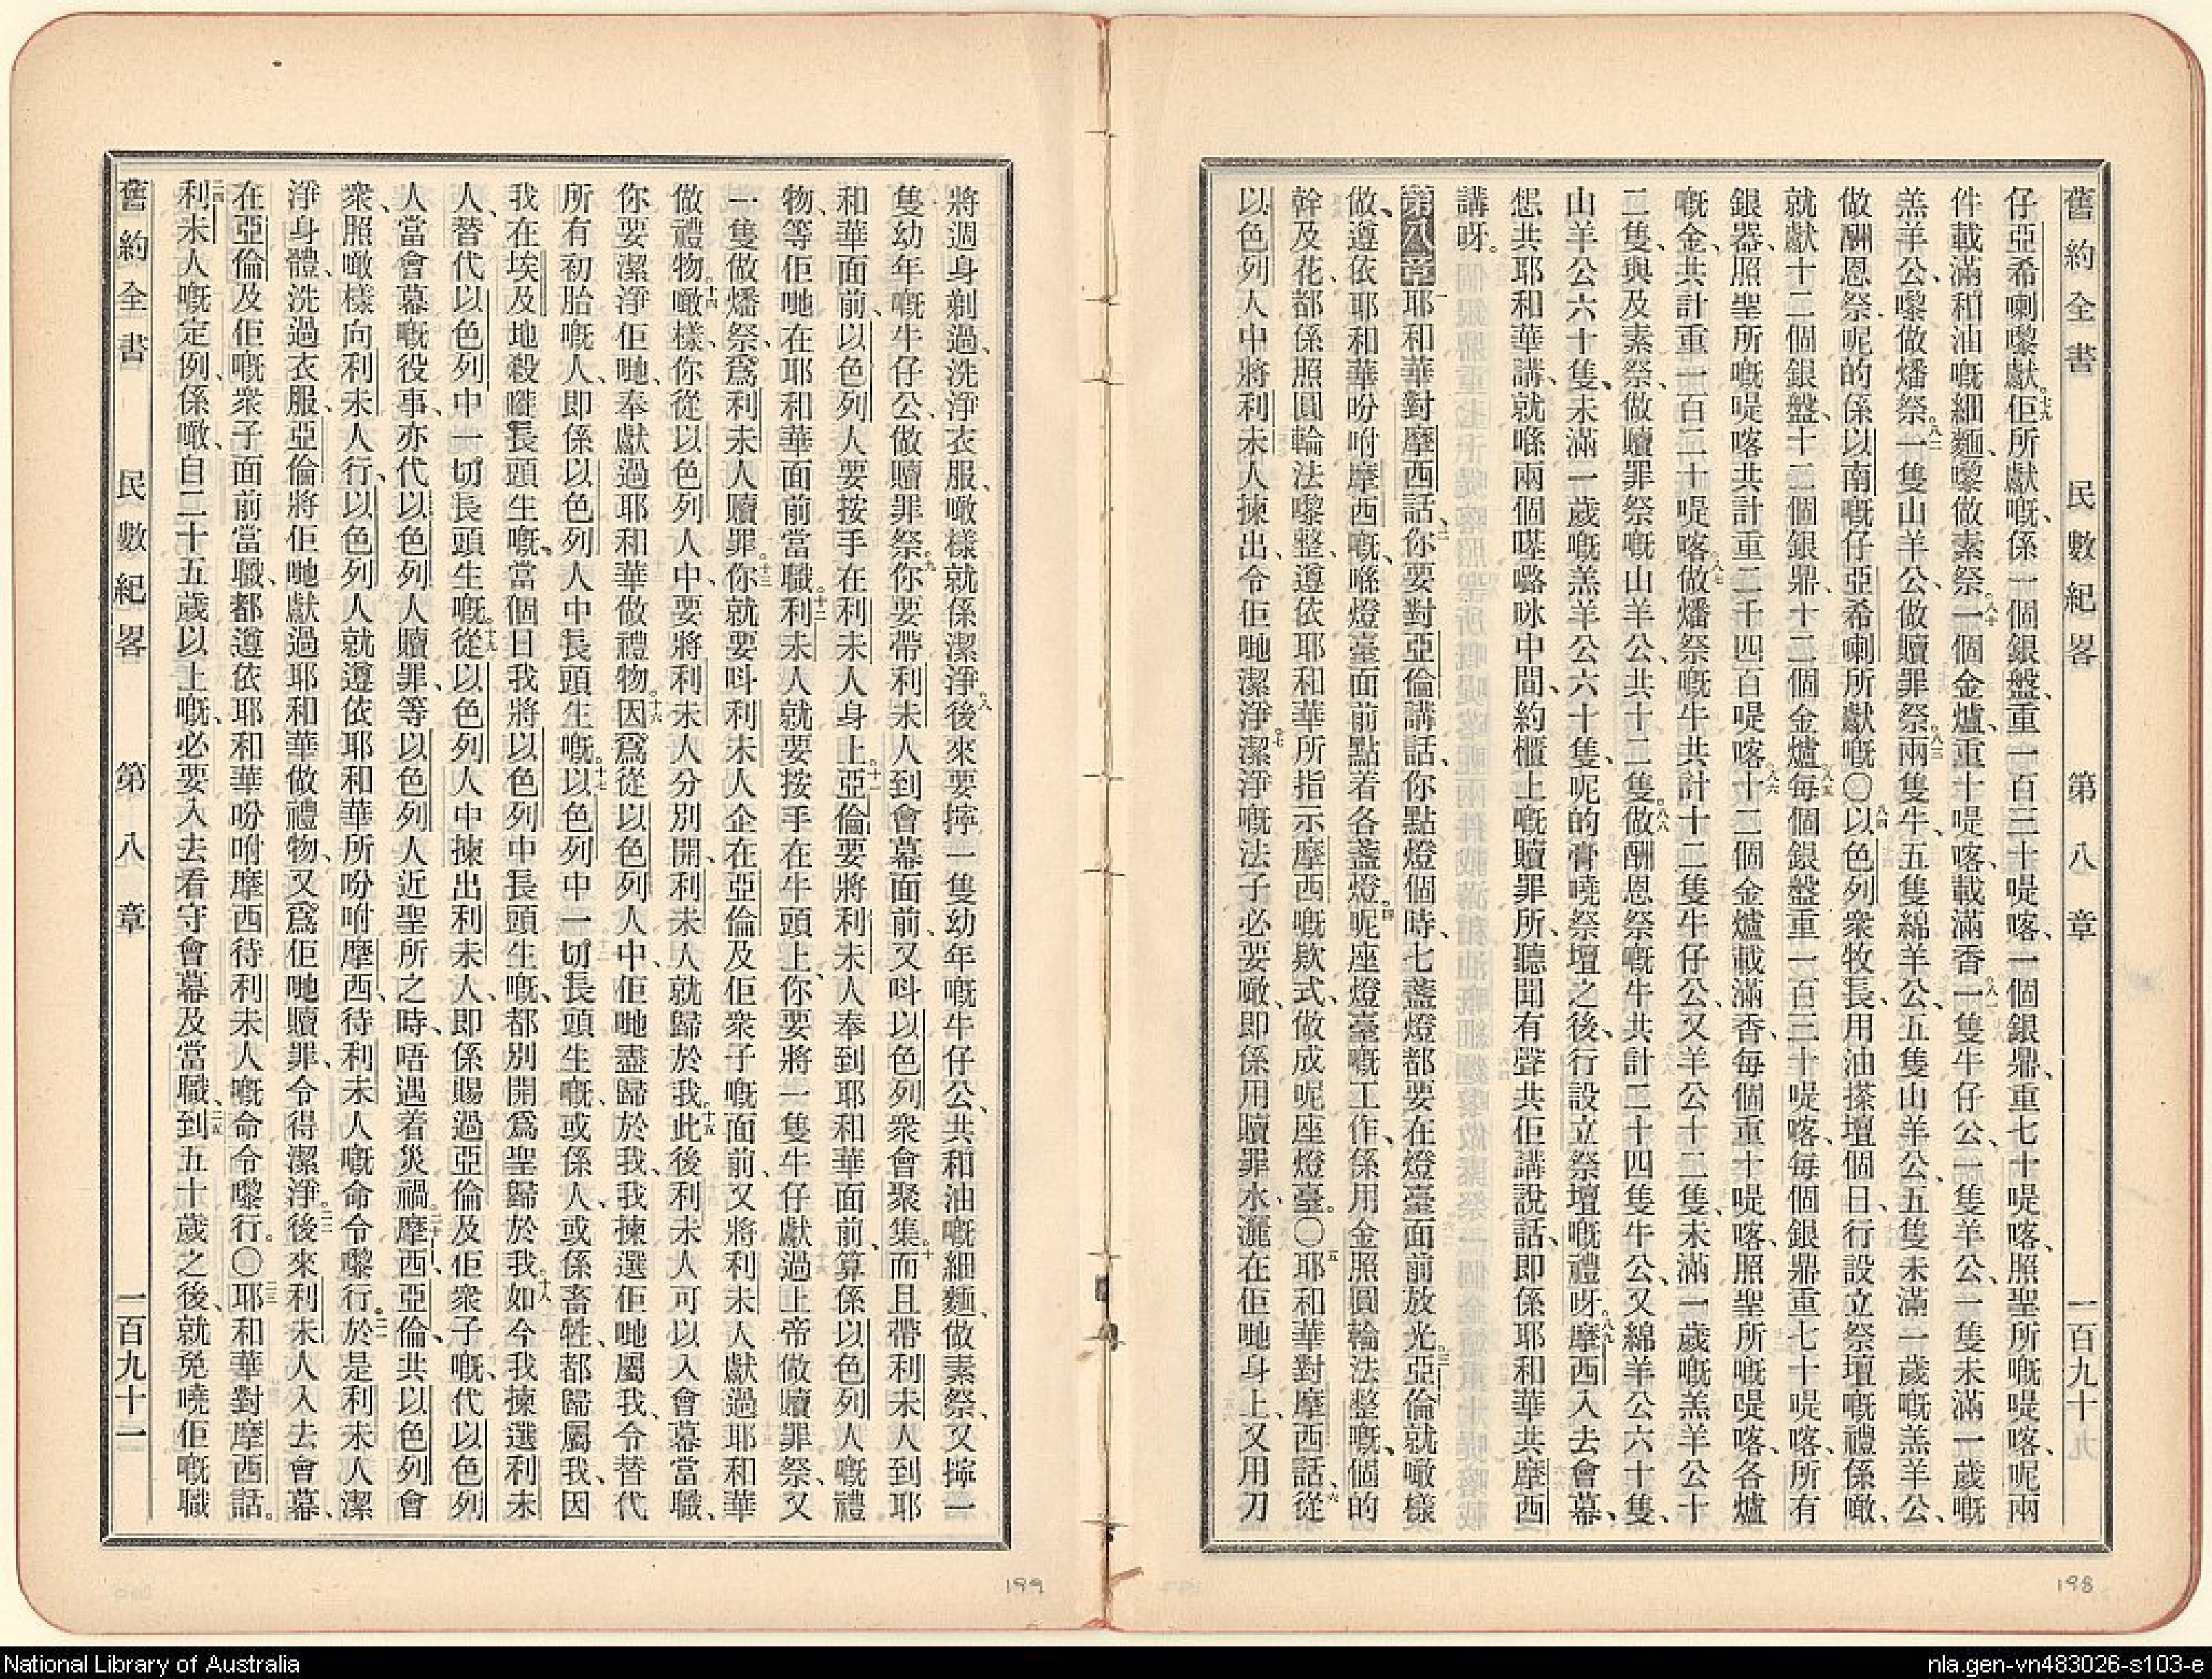 舊約全書　民數紀畧　第八章　一百九十
仔亞希喇嚟獻。七九佢所獻嘅、係一個銀盤、重一百三十㖷喀、一個銀鼎、重七十㖷喀、照聖所嘅㖷喀、呢兩
件載滿和油嘅細麵、嚟做素祭。八十一個金爐、重十㖷喀、載滿香。八一一隻牛仔公、一隻羊公、一隻未滿一歲嘅
羔羊公、嚟做燔祭。八二一隻山羊公、做贖罪祭。八三兩隻牛、五隻綿羊公、五隻山羊公、五隻未滿一歲嘅羔羊公、
做酬恩祭、呢的係以南嘅仔亞希喇所獻嘅〇八四以色列衆牧長、用油搽壇個日、行設立祭壇嘅禮係噉、
就獻十二個銀盤、十二個銀鼎、十二個金爐、八五每個銀盤重一百三十㖷喀、每個銀鼎重七十㖷喀、所有
銀器、照聖所嘅㖷喀共計重二千四百㖷喀、八六十二個金爐載滿香、每個重十㖷喀、照聖所嘅㖷喀、各爐
嘅金、共計重一百二十㖷喀。八七做燔祭嘅牛共計十二隻牛仔公、又羊公十二隻、未滿一歲嘅羔羊公十
二隻、與及素祭、做贖罪祭嘅山羊公、共十二隻。八八做酬恩祭嘅牛共計二十四隻牛公、又綿羊公六十隻、
山羊公六十隻、未滿一歲嘅羔羊公六十隻、呢的膏曉祭壇之後、行設立祭壇嘅禮呀。八九摩西入去會幕、
想共耶和華講、就喺兩個㗎㗖㕪中間、約櫃上嘅贖罪所、聽聞有聲共佢講說話、即係耶和華共摩西
講呀。
第八章一耶和華對摩西話、二你要對亞倫講話、你點燈個時、七盞燈都要在燈臺面前放光。三亞倫就噉樣
做、遵依耶和華吩咐摩西嘅、喺燈臺面前點着各盞燈。四呢座燈臺嘅工作、係用金照圓輪法整嘅、個的
幹及花、都係照圓輪法嚟整、遵依耶和華所指示摩西嘅欵式、做成呢座燈臺。〇五耶和華對摩西話、六從
以色列人中將利未人揀出、令佢哋潔淨。七潔淨嘅法子必要噉、即係用贖罪水、灑在佢哋身上、又用刀
將週身剃過、洗淨衣服、噉樣就係潔淨。八後來要擰一隻幼年嘅牛仔公、共和油嘅細麵、做素祭、又擰一
隻幼年嘅牛仔公、做贖罪祭。九你要帶利未人到會幕面前、又呌以色列衆會聚集。十而且帶利未人到耶
和華面前、以色列人要按手在利未人身上。十一亞倫要將利未人奉到耶和華面前、算係以色列人嘅禮
物、等佢哋在耶和華面前當職。十二利未人就要按手在牛頭上、你要將一隻牛仔獻過上帝做贖罪祭、又
一隻做燔祭、爲利未人贖罪。十三你就要呌利未人企在亞倫及佢衆子嘅面前、又將利未人獻過耶和華
做禮物。十四噉樣、你從以色列人中、要將利未人分別開、利未人就歸於我。十五此後利未人可以入會幕當職、
你要潔淨佢哋、奉獻過耶和華做禮物。十六因爲從以色列人中、佢哋盡歸於我、我揀選佢哋屬我、令替代
所有初胎嘅人、即係以色列人中長頭生嘅。十七以色列中一切長頭生嘅、或係人、或係畜牲、都歸屬我、因
我在埃及地殺嘥長頭生嘅、當個日我將以色列中長頭生嘅、都別開爲聖歸於我。十八如今我揀選利未
人、替代以色列中一切長頭生嘅。十九從以色列人中揀出利未人、即係賜過亞倫及佢衆子嘅、代以色列
人當會幕嘅役事、亦代以色列人贖罪、等以色列人近聖所之時、唔遇着災禍。二十摩西、亞倫、共以色列會
衆、照噉樣向利未人行、以色列人就遵依耶和華所吩咐摩西、待利未人嘅命令嚟行。二一於是利未人潔
淨身體、洗過衣服、亞倫將佢哋獻過耶和華做禮物、又爲佢哋贖罪、令得潔淨。二二後來利未人入去會幕、
在亞倫及佢嘅衆子面前當職、都遵依耶和華吩咐摩西待利未人嘅命令嚟行。〇二三耶和華對摩西話。
二四利未人嘅定例、係噉、自二十五歲以上嘅、必要入去看守會幕及當職、二五到五十歲之後、就免曉佢嘅職
舊約全書　民數紀畧　第八章　一百九十一
199
198
National Library of Australia
nla.gen-vn483026-s103-e